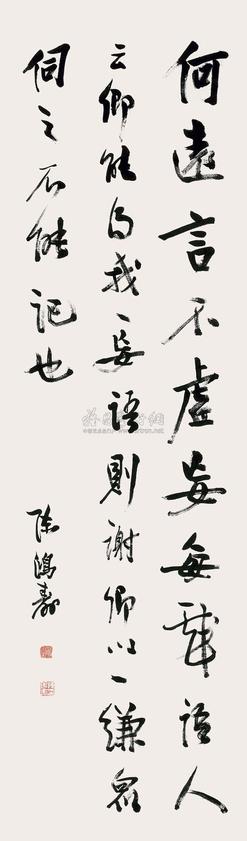 何遠言不虛妄每戲語人
云卿能得我一妄語則謝卿以一縑衆
伺之不能記也
陳鴻壽